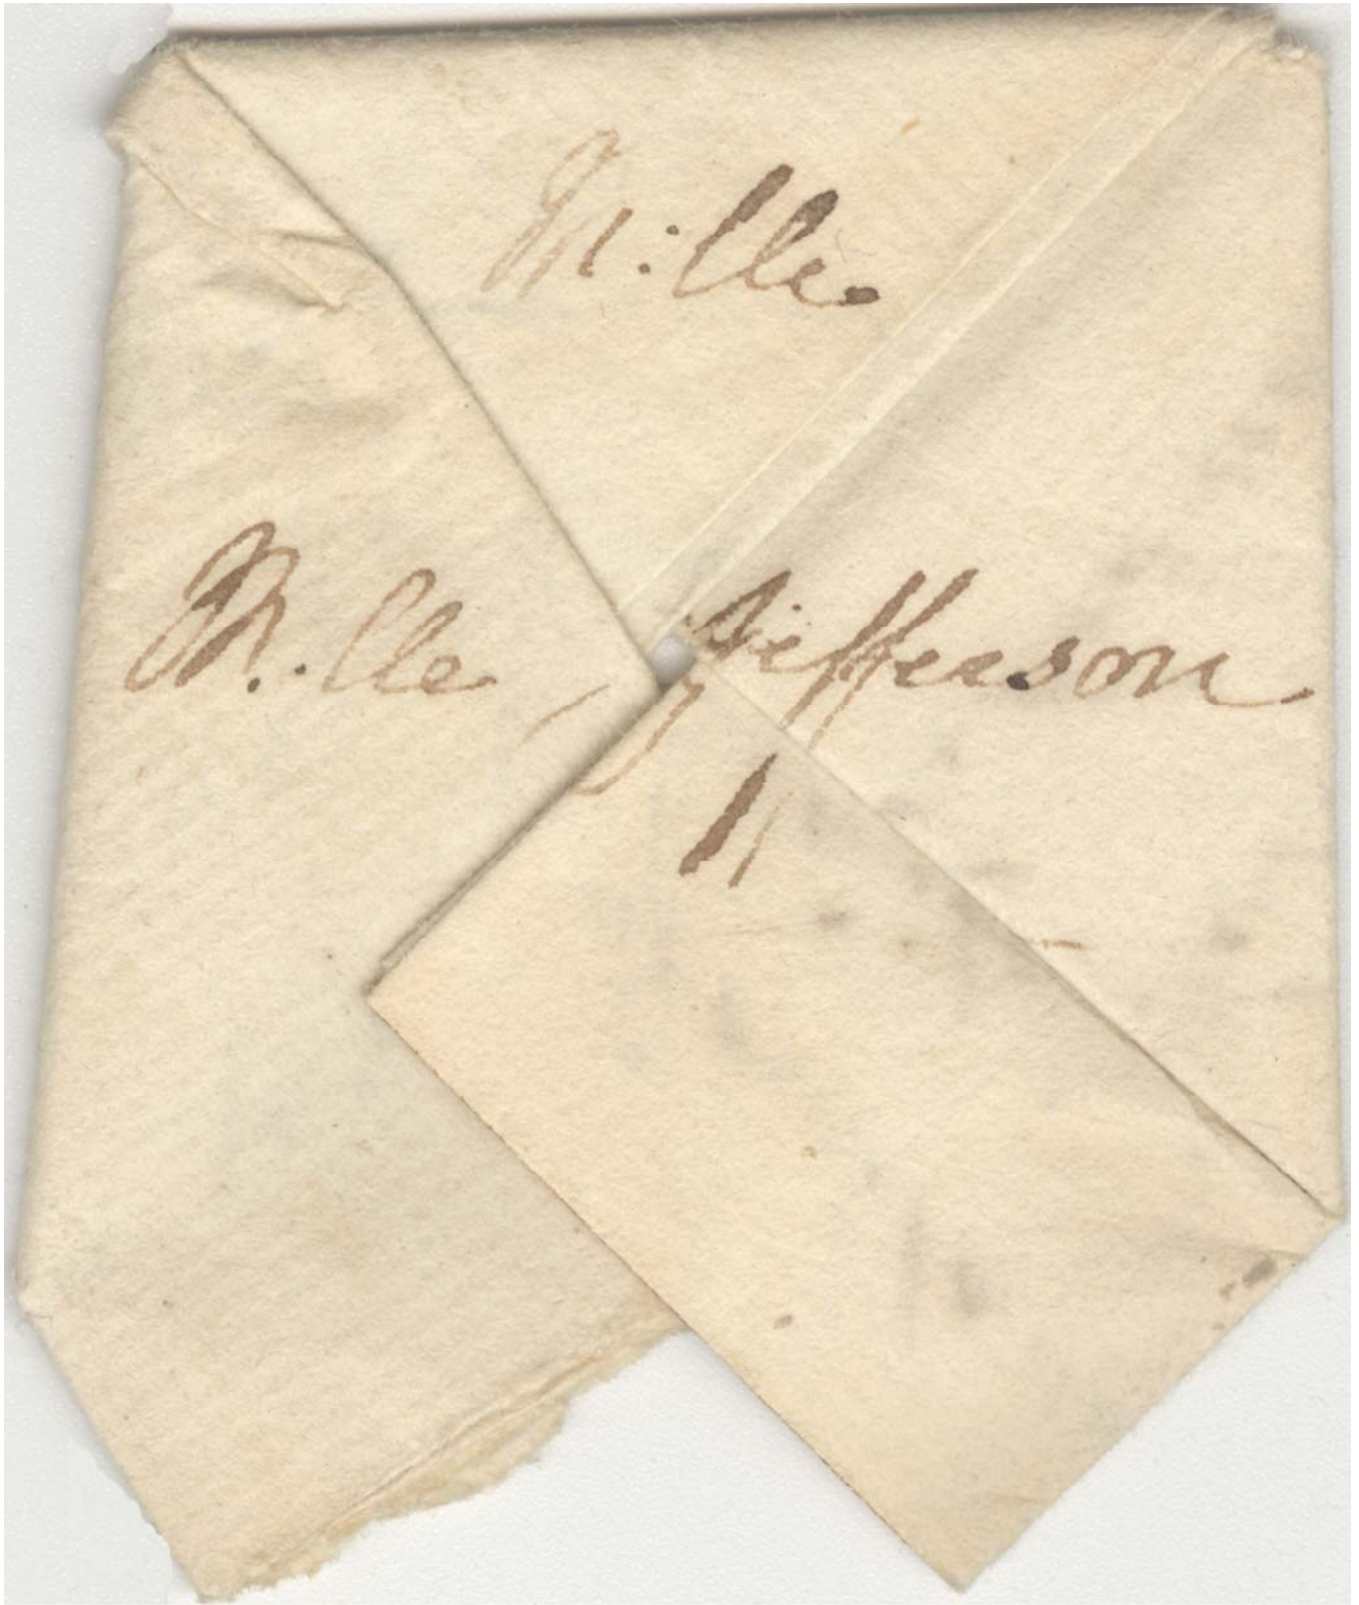 M:lle
M.lle Jefferson